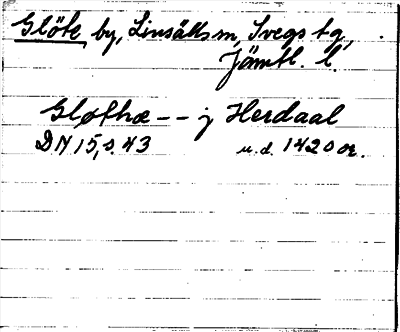 Glöte by, Linsälls sn, Svegs tg,
Jämtl. l.
Gløthæ -- j Herdaal
DN 15, s. 43 u.d. 1420 or.